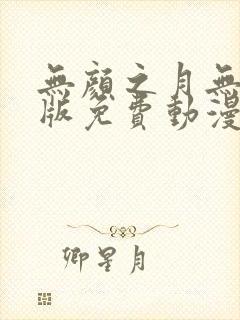 無顏之月無
版免費動漫
卿星月